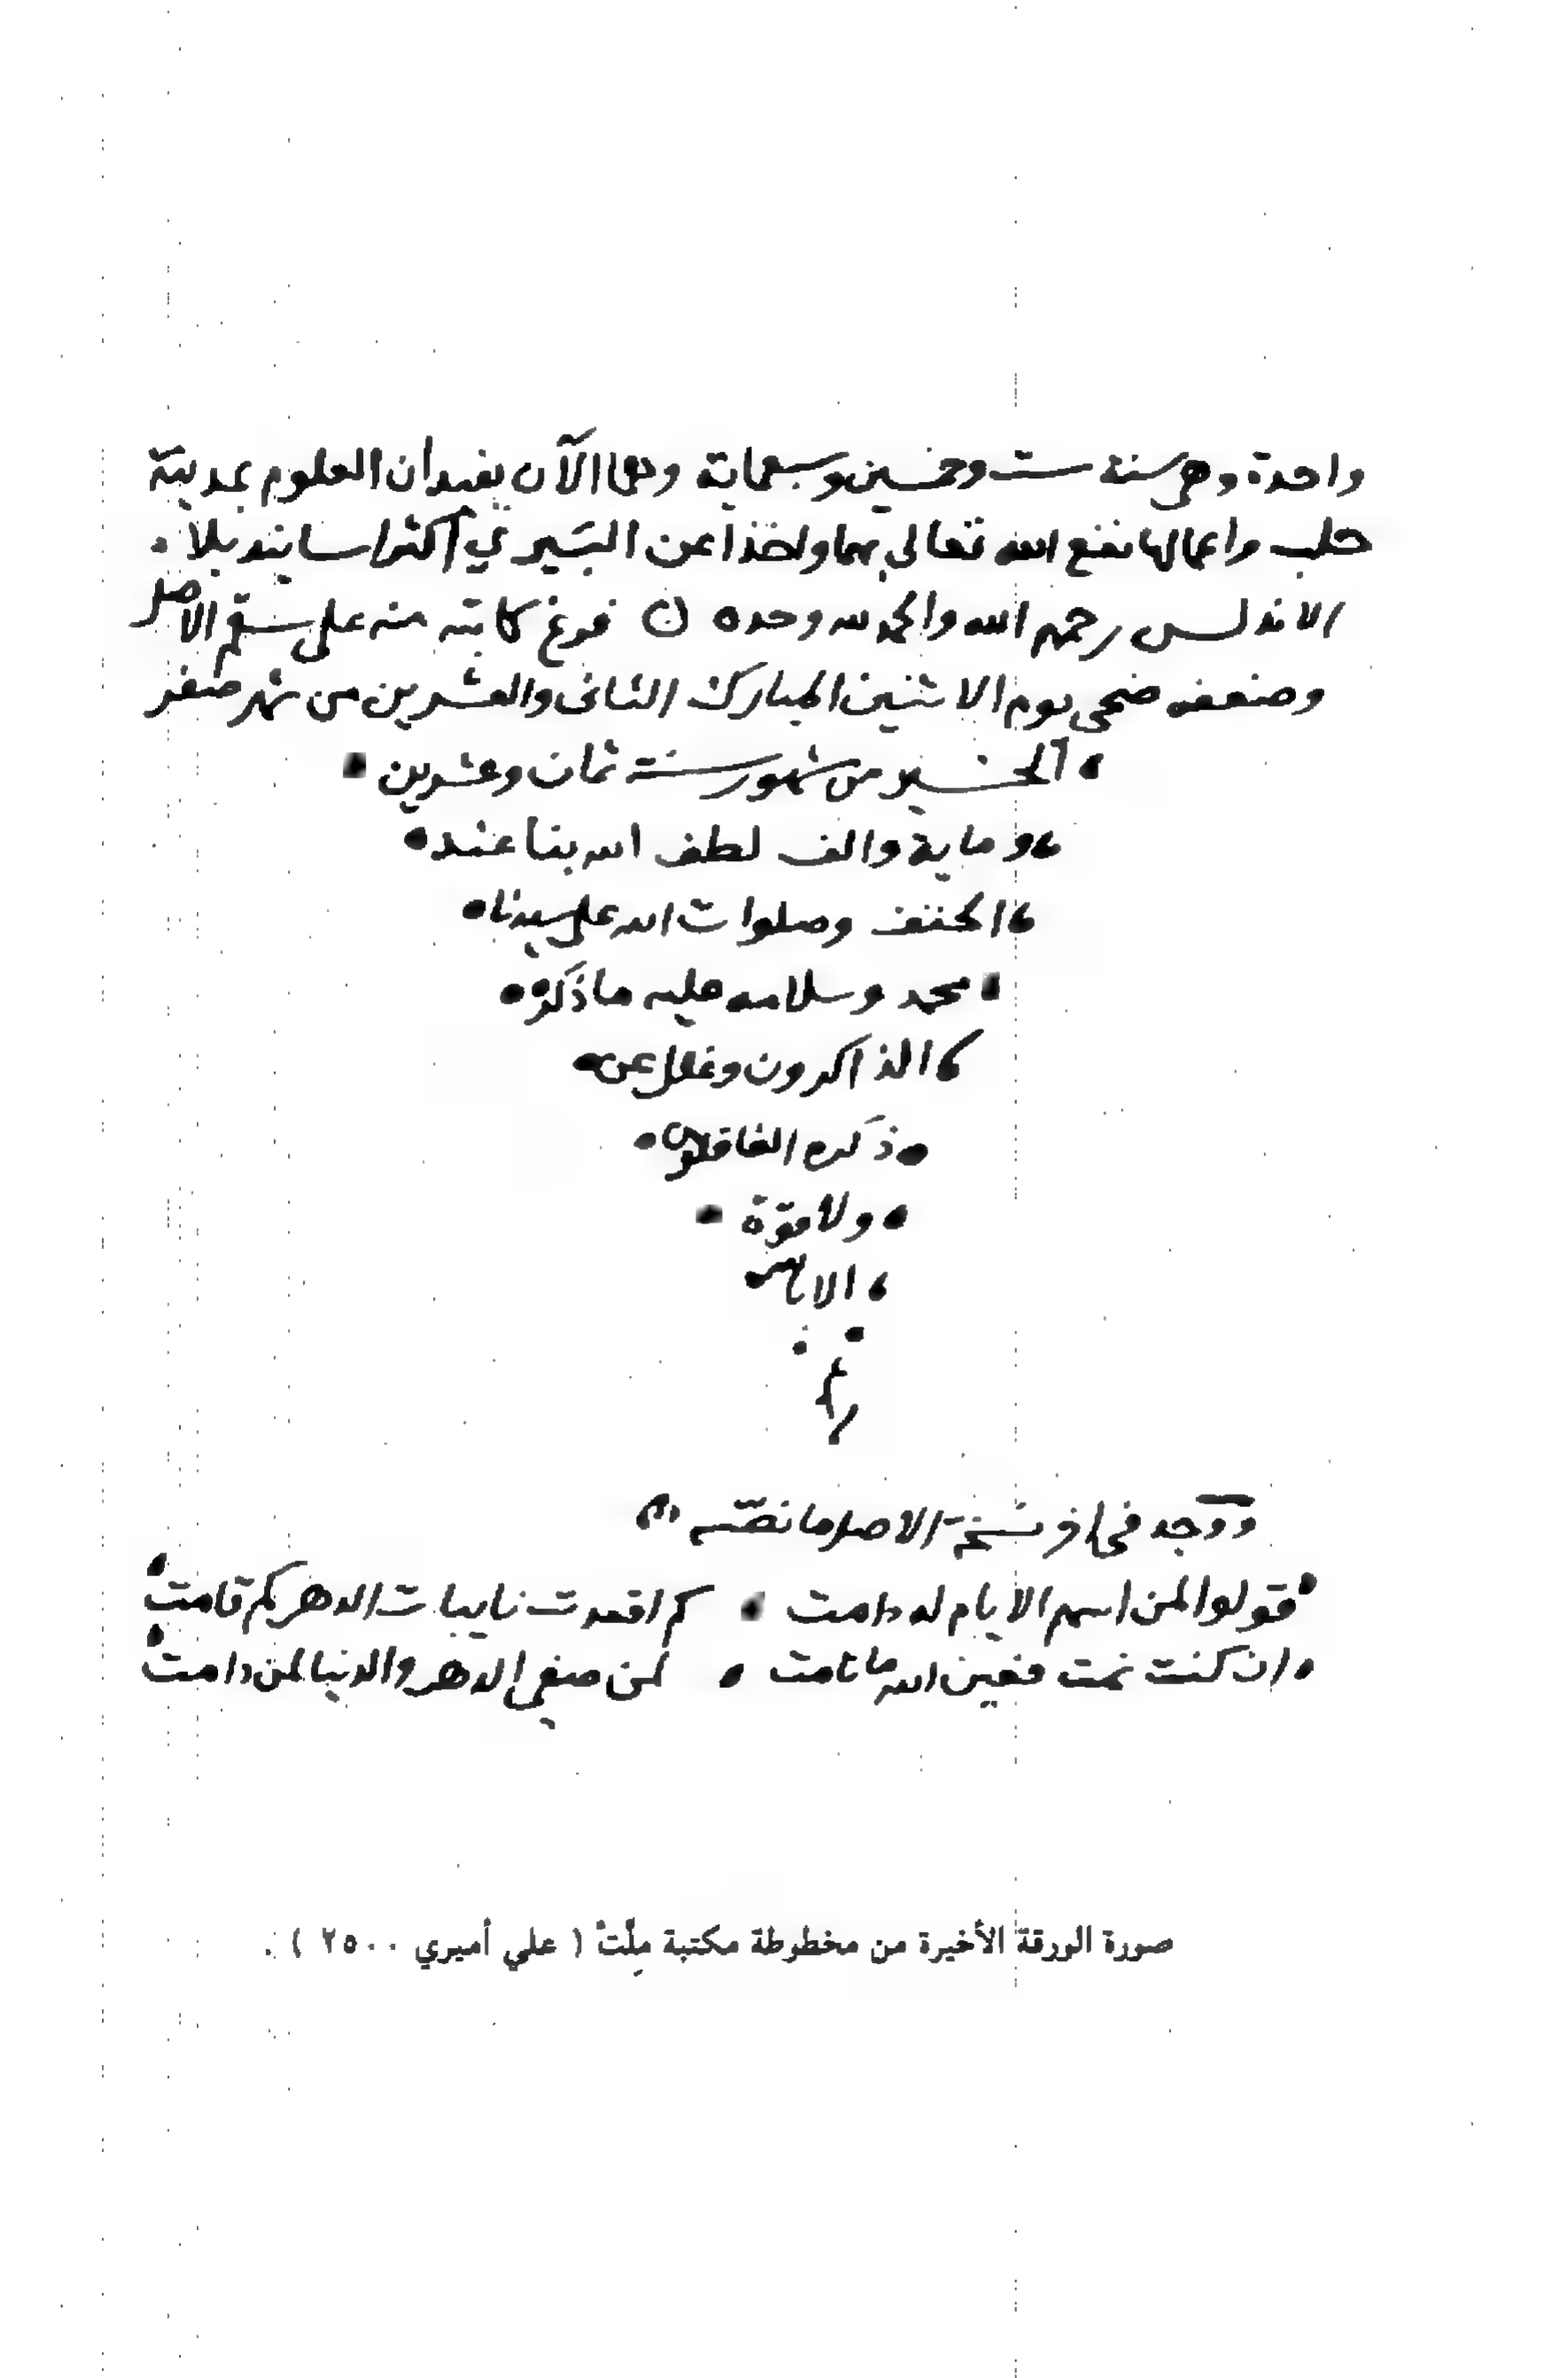 واحدة وهى سنة ست وخمسين وسبعماية وهما الآن يفيدان العلوم بمدينة
حلب واعمالها نفع الله تعالى بهما واخذا عن البيري أكثر اسانيد بلاد
الاندلس رحمهم الله والحمد لله وحده ن فرغ كاتبه منه على سقم الاصل
وضعفه ضحى يوم الاثنين المبارك الثانى والعشرين من شهر صفر
الخير من شهور سنة ثمان وعشرين
وماية والف لطف الله بنا عنده
وصلوات الله على سيدنا
محمد وسلامه عليه ما ذكره
الذاكرون وغفل عن
ذكره الغافلون
ولا قوة
الا بالله
ووجد فى اخر نسخة الاصل ما نصّه
قولوا لمن اسهم الايام له دامت كم اقعدت نايبات الدهر كم قامت
ان كنت نمت فعين الله ما نامت لمن صفي الدهر والدنيا لمن دامت
صورة الورقة الأخيرة من مخطوطة مكتبة مِلّتْ ( علي أميري ٢٥٠٠ ) .